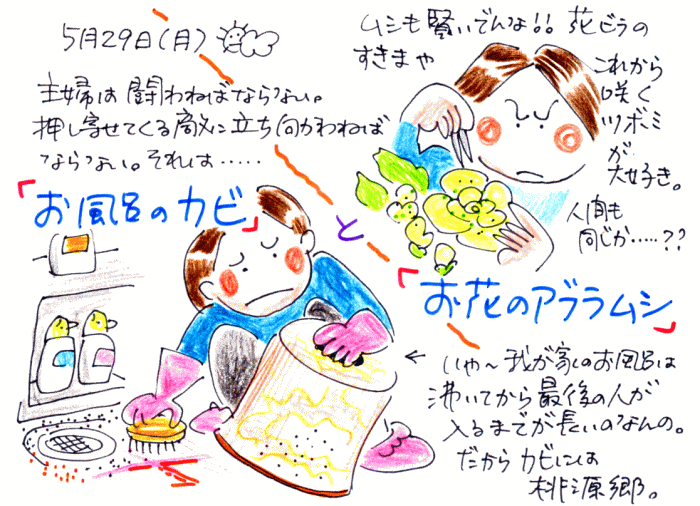 5月29日(月)
主婦は闘わねばならない。
押し寄せてくる敵に立ち向かわねば
ならない。それは……
「お風呂のカビ」
と
「お花のアブラムシ」
ムシも賢いでんな!! 花ビラの
すきまや
これから
咲く
ツボミ
が
大好き。
人間も
同じか……??
← いや〜我が家のお風呂は
沸いてから最後の人が
入るまでが長いのなんの。
だからカビには
桃源郷。